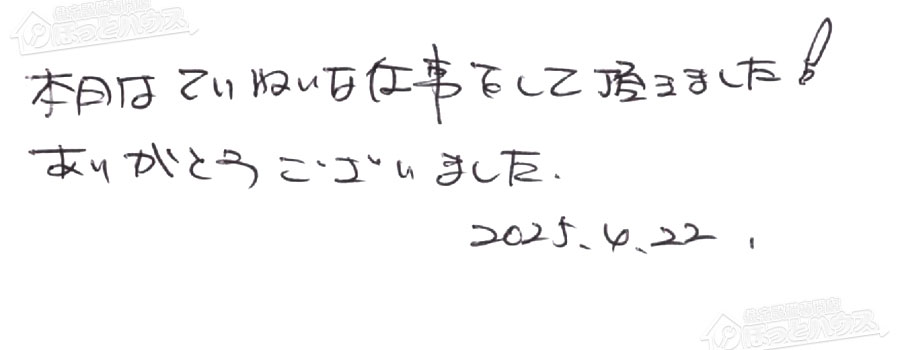 ほっとハウス
本日はていねいな仕事をして頂きました!
ありがとうございました.
2025.4.22.
ほっとハウス